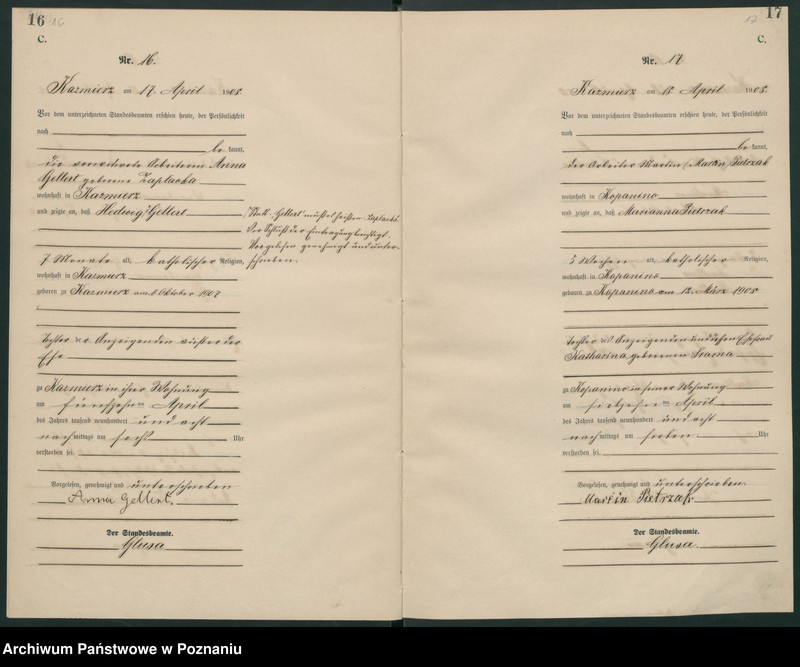 16
C.
Nr. 16.
Kazmierz am 17. April 1908
Vor dem unterzeichneten Standesbeamten erschien heute, der Persönlichkeit
nach
be kannt,
die verwitwete Arbeiterin Anna
Gellert geborene Zaplacka
wohnhaft in Kazmierz
und zeigte an, daß Hedwig Gellert
Statt Gellert muß es heißen Zaplacka.
Vorgelesen genehmigt und unter-
schrieben.
7 Monate alt, katholischer Religion,
wohnhaft in Kazmierz
geboren zu Kazmierz am Oktober 1907
Tochter der Anzeigenden außer der
Ehe
zu Kazmierz in ihrer Wohnung
am fünfzehnten April
des Jahres tausend neunhundert und acht
nachmittags um sechs Uhr
verstorben sei.
Vorgelesen, genehmigt und unterschrieben
Anna Gellert.
Der Standesbeamte.
Glusa
17
C.
Nr. 17
Kazmierz am 18. April 1908.
Vor dem unterzeichneten Standesbeamten erschien heute, der Persönlichkeit
nach
be kannt,
der Arbeiter Martin (Marcin) Pietrzak
wohnhaft in Kopanino
und zeigte an, daß Marianna Pietrzak
5 Wochen alt, katholischer Religion,
wohnhaft in Kopanino
geboren zu Kopanino am 12. März 1908
Tochter des Anzeigenden und dessen Ehefrau
Katharina geborenen Srama
zu Kopanino in seiner Wohnung
am siebzehnten April
des Jahres tausend neunhundert und acht
nachmittags um sieben Uhr
verstorben sei.
Vorgelesen, genehmigt und unterschrieben.
Marcin Pietrzak
Der Standesbeamte.
Glusa.
Archiwum Państwowe w Poznaniu